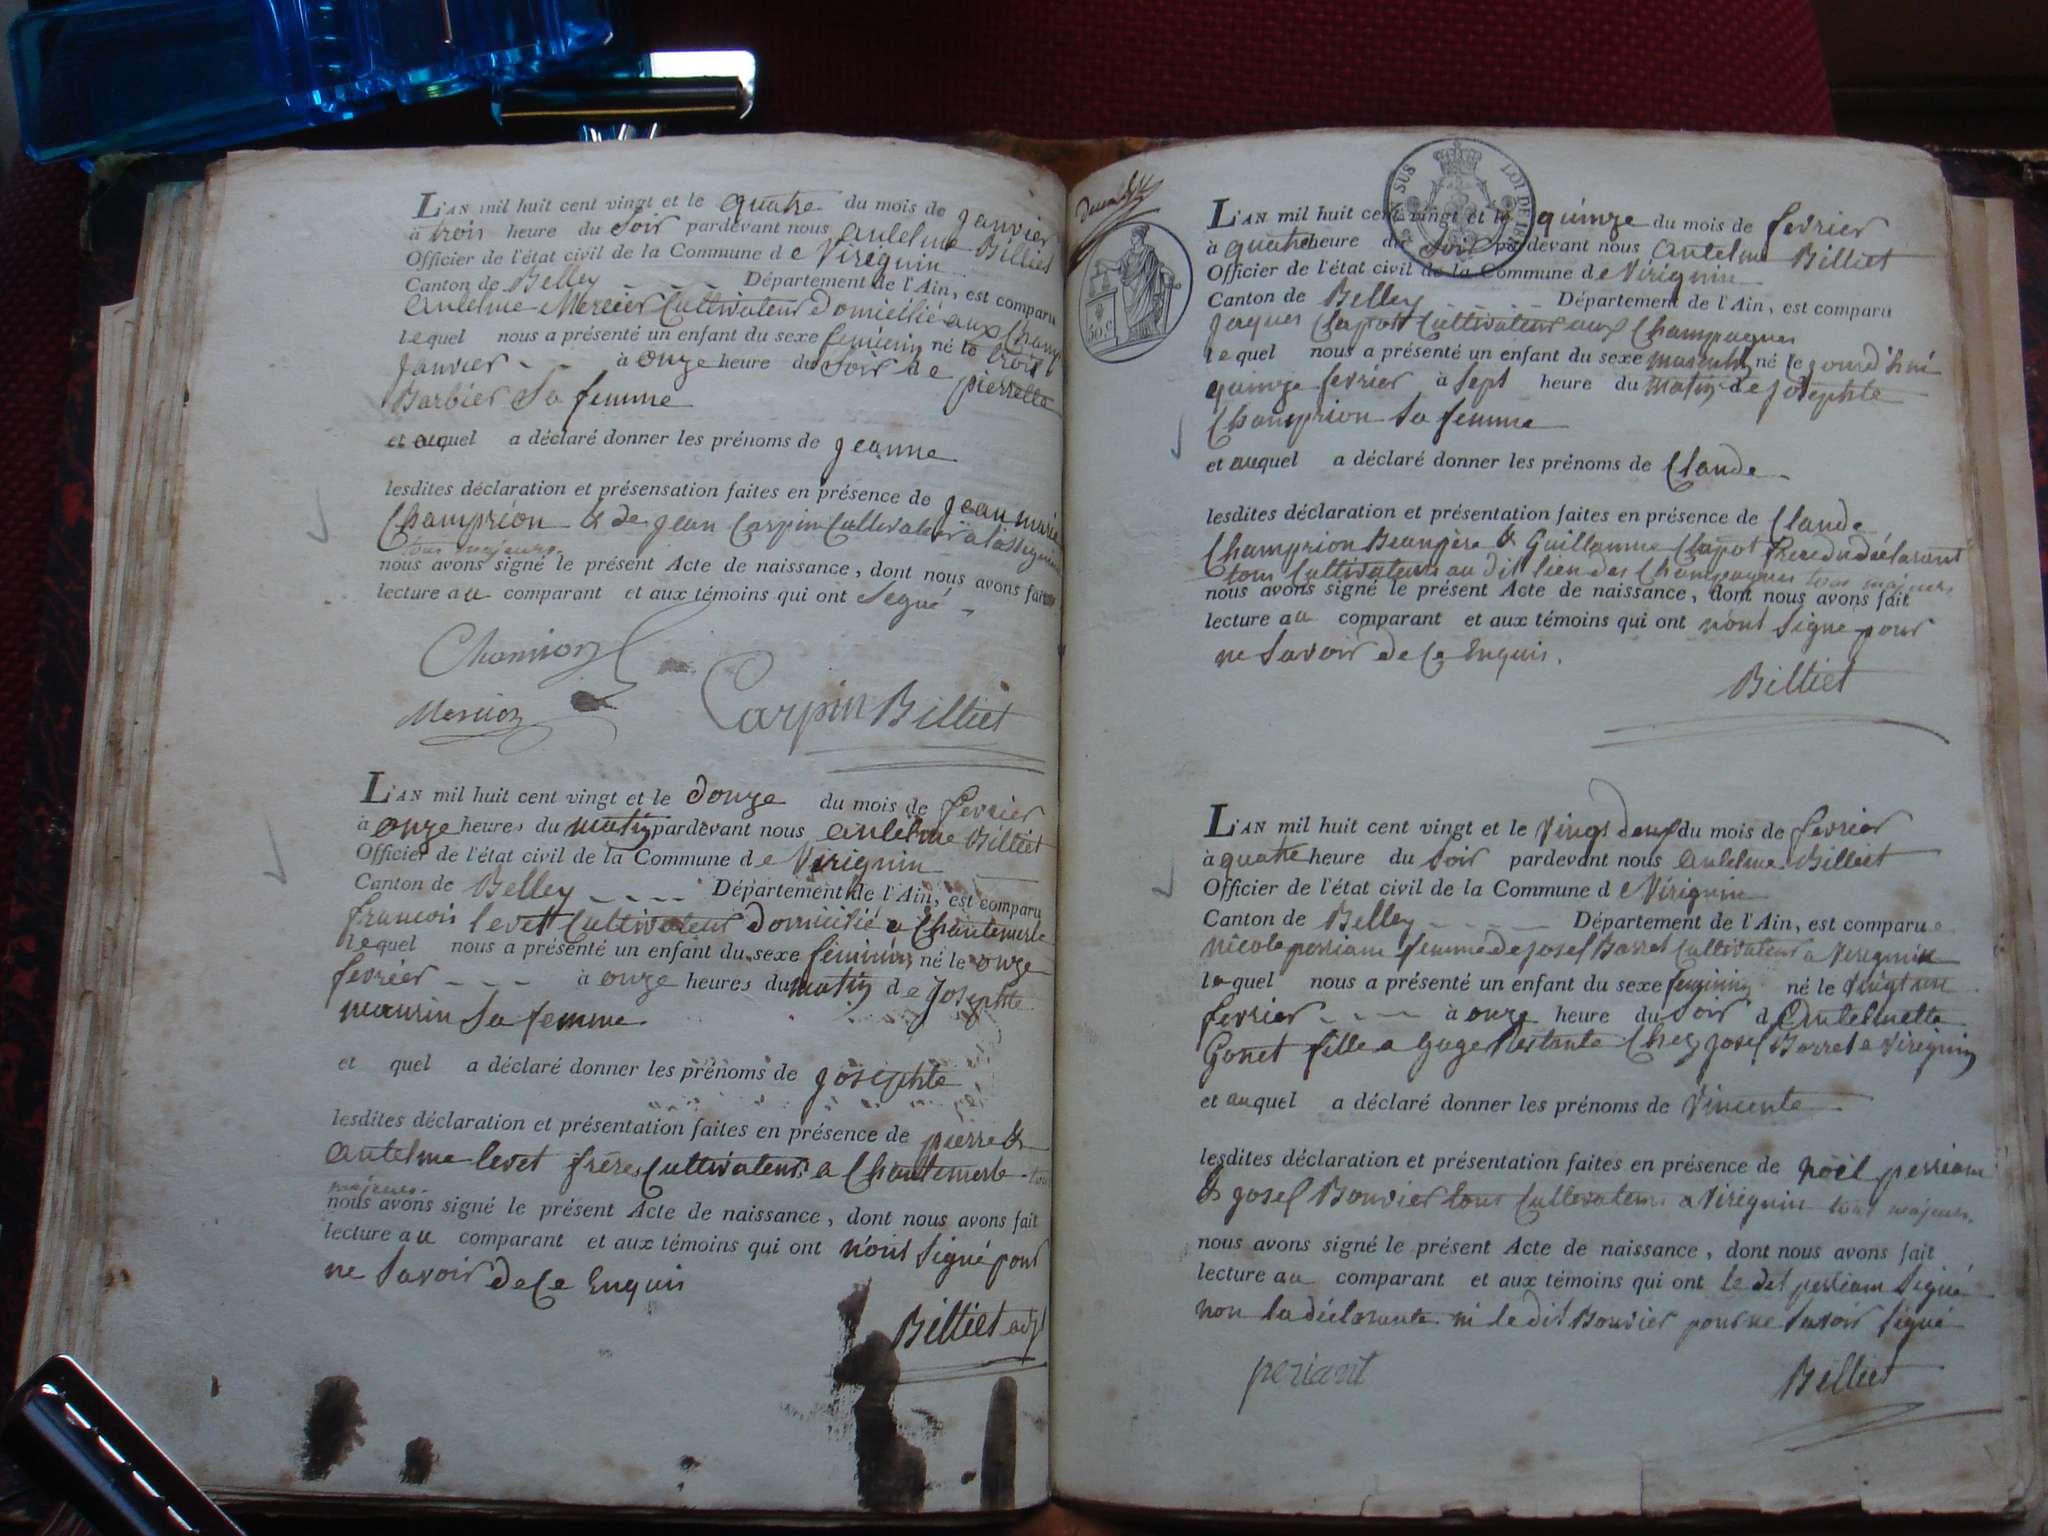 L'AN mil huit cent vingt et le quatre du mois de janvier
à trois heure du soir pardevant nous antelme Billiet
Officier de l'état civil de la Commune de Virignin
Canton de Belley Département de l'Ain, est comparu
antelme Mercier Cultivateur domicilié aux Champ
lequel nous a présenté un enfant du sexe feminin né le trois
janvier à onze heure du soir de pierrette
Barbier sa femme
et auquel a déclaré donner les prénoms de jeanne
lesdites déclaration et présensation faites en présence de jean marie
Champrion & de jean Carpin Cultivateur
tous majeurs
nous avons signé le présent Acte de naissance, dont nous avons fait
lecture au comparant et aux témoins qui ont segné
Carpin Billiet
L'AN mil huit cent vingt et le douze du mois de fevrier
à onze heures du matin pardevant nous antelme Billiet
Officier de l'état civil de la Commune de Virignin
Canton de Belley Département de l'Ain, est comparu
francois levet Cultivateur domicilié a Chantemerle
lequel nous a présenté un enfant du sexe féminin né le onze
fevrier à onze heures du matin de josephte
maurin sa femme
et quel a déclaré donner les prénoms de josephte
lesdites déclaration et présentation faites en présence de pierre &
antelme levet frères Cultivateurs a Chantemerle tous
majeurs
nous avons signé le présent Acte de naissance, dont nous avons fait
lecture au comparant et aux témoins qui ont n'ont signé pour
ne savoir de Ce Enquis
Billiet adjt
SUS LOI DE
50.c
L'AN mil huit cent vingt et le quinze du mois de fevrier
à quatre heure du soir pardevant nous antelme Billiet
Officier de l'état civil de la Commune de Virignin
Canton de Belley Département de l'Ain, est comparu
jaques Clapot Cultivateur aux Champagnes
lequel nous a présenté un enfant du sexe masculin né le jourd'hui
quinze fevrier à sept heure du matin de josephte
Champrion sa femme
et auquel a déclaré donner les prénoms de Claude
lesdites déclaration et présentation faites en présence de Claude
Champrion Beaupère & Guillaume Clapot frere du déclarant
tous Cultivateurs au dit lieu des Champagnes tous majeurs
nous avons signé le présent Acte de naissance, dont nous avons fait
lecture au comparant et aux témoins qui ont n'ont signé pour
ne savoir de Ce Enquis.
Billiet
L'AN mil huit cent vingt et le vingt deux du mois de fevrier
à quatre heure du soir pardevant nous antelme Billiet
Officier de l'état civil de la Commune de Virignin
Canton de Belley Département de l'Ain, est comparue
nicole perriam femme de josef Borret Cultivateur a virignin
laquel nous a présenté un enfant du sexe feminin né le vingt un
fevrier à onze heure du soir d'antelmette
Gonet fille a gage restante Chez josef Borret a virignin
et auquel a déclaré donner les prénoms de Vincente
lesdites déclaration et présentation faites en présence de noël perriam
& josef Bouvier tous Cultivateurs a virignin tous majeurs.
nous avons signé le présent Acte de naissance, dont nous avons fait
lecture au comparant et aux témoins qui ont le dit perriam signé
non la déclarante ni le dit Bouvier pour ne savoir signé
periant Billiet